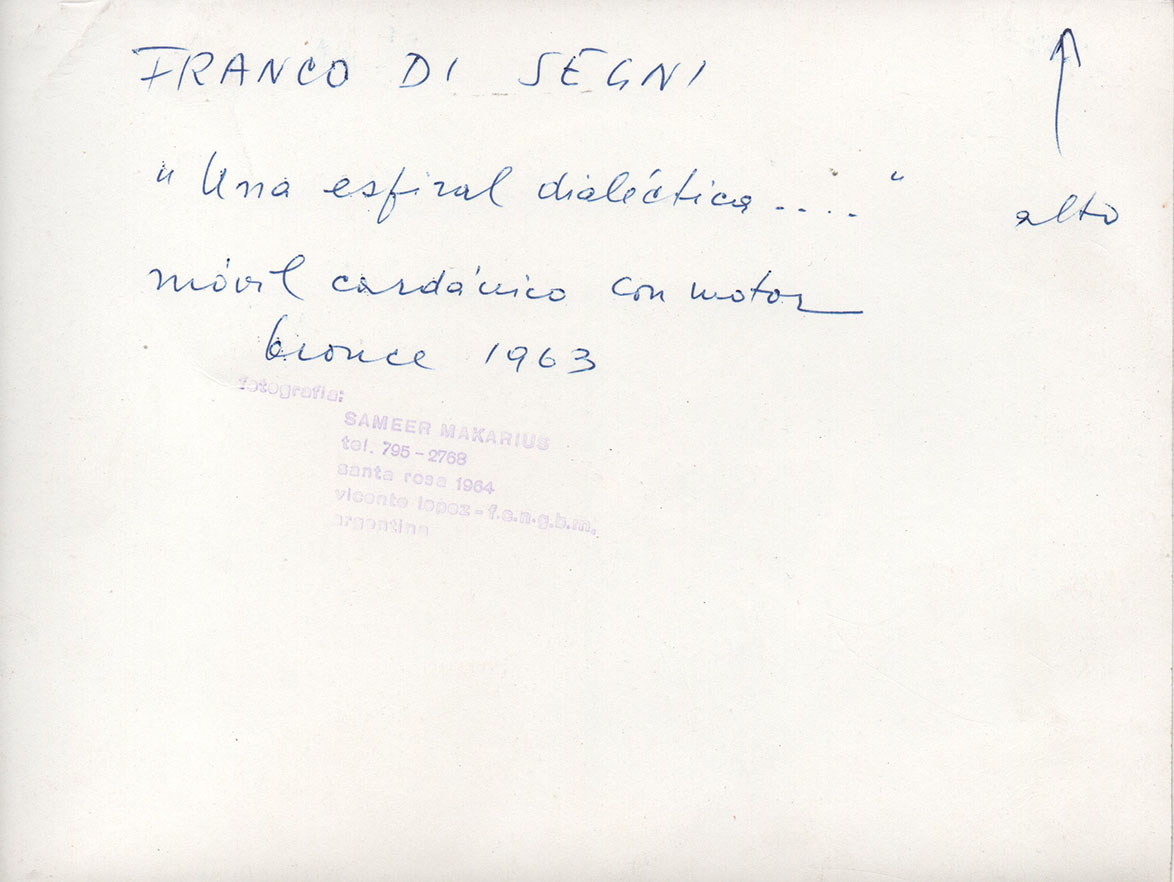 FRANCO DI SEGNI
"Una espiral dialéctica...."
alto
móvil cardánico con motor
bronce 1963
fotografia:
SAMEER MAKARIUS
tel. 795-2768
santa rosa 1964
vicente lopez - f.c.n.g.b.m.
argentina